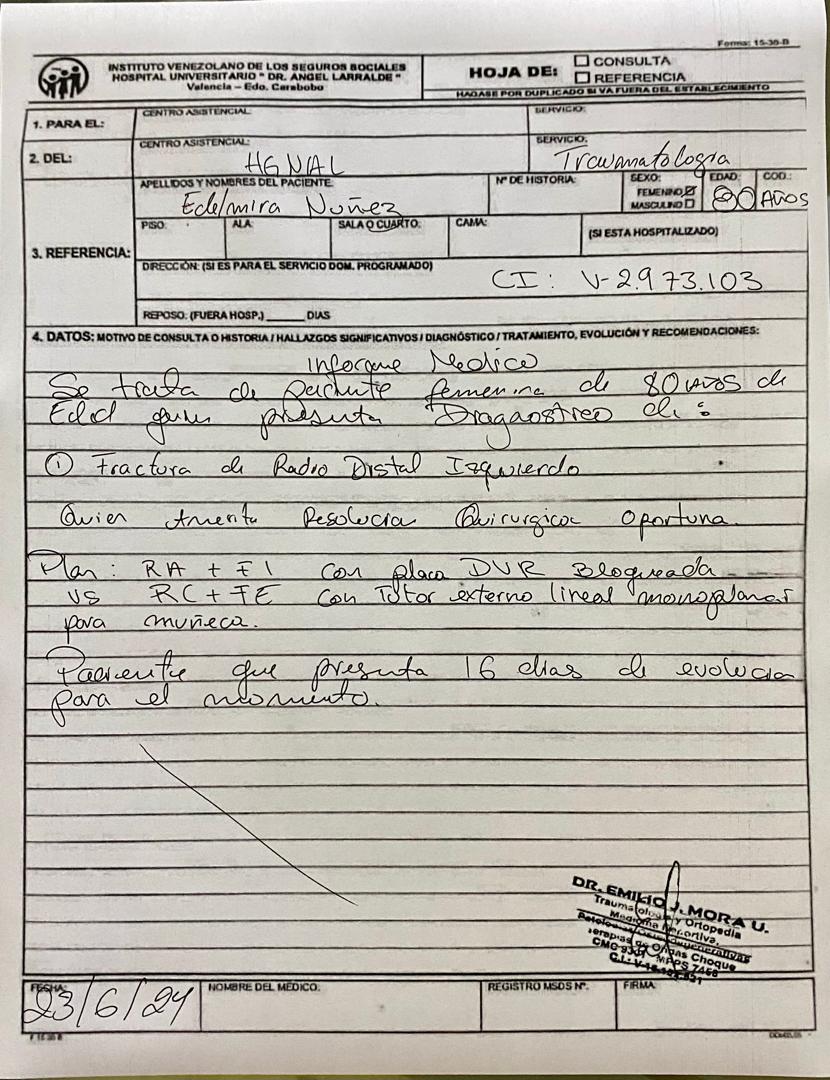 Forma: 15-30-B
INSTITUTO VENEZOLANO DE LOS SEGUROS SOCIALES
HOSPITAL UNIVERSITARIO " DR. ANGEL LARRALDE "
Valencia – Edo. Carabobo
HOJA DE:
CONSULTA
REFERENCIA
HAGASE POR DUPLICADO SI VA FUERA DEL ESTABLECIMIENTO
1. PARA EL:
CENTRO ASISTENCIAL
SERVICIO:
2. DEL:
CENTRO ASISTENCIAL:
HGNAL
SERVICIO:
Traumatologia
3. REFERENCIA:
APELLIDOS Y NOMBRES DEL PACIENTE
Edelmira Nuñez
Nº DE HISTORIA:
SEXO:
FEMENINO
MASCULINO
EDAD:
80
COD.:
AÑOS
PISO:
ALA:
SALA O CUARTO:
CAMA:
(SI ESTA HOSPITALIZADO)
DIRECCIÓN: (SI ES PARA EL SERVICIO DOM. PROGRAMADO)
CI: V-2.973.103
REPOSO: (FUERA HOSP.) ______ DIAS
4. DATOS: MOTIVO DE CONSULTA O HISTORIA / HALLAZGOS SIGNIFICATIVOS / DIAGNÓSTICO / TRATAMIENTO, EVOLUCIÓN Y RECOMENDACIONES:
Informe Medico
Se trata de paciente femenina de 80 años de
Edad quien presenta Diagnostico de:
① Fractura de Radio Distal Izquierdo
Quien Amerita Resolucion Quirurgica oportuna.
Plan: RA + FI con placa DVR Bloqueada
vs RC + FE con Tutor externo lineal monoplanar
para muñeca.
Paciente que presenta 16 dias de evolucion
para el momento.
DR. EMILIO J. MORA U.
Traumatologia y Ortopedia
Medicina Deportiva.
Terapias de Ondas Choque
MPPS 7456
FECHA:
23/6/24
NOMBRE DEL MÉDICO:
REGISTRO MSDS Nº.
FIRMA
F 15-30 B